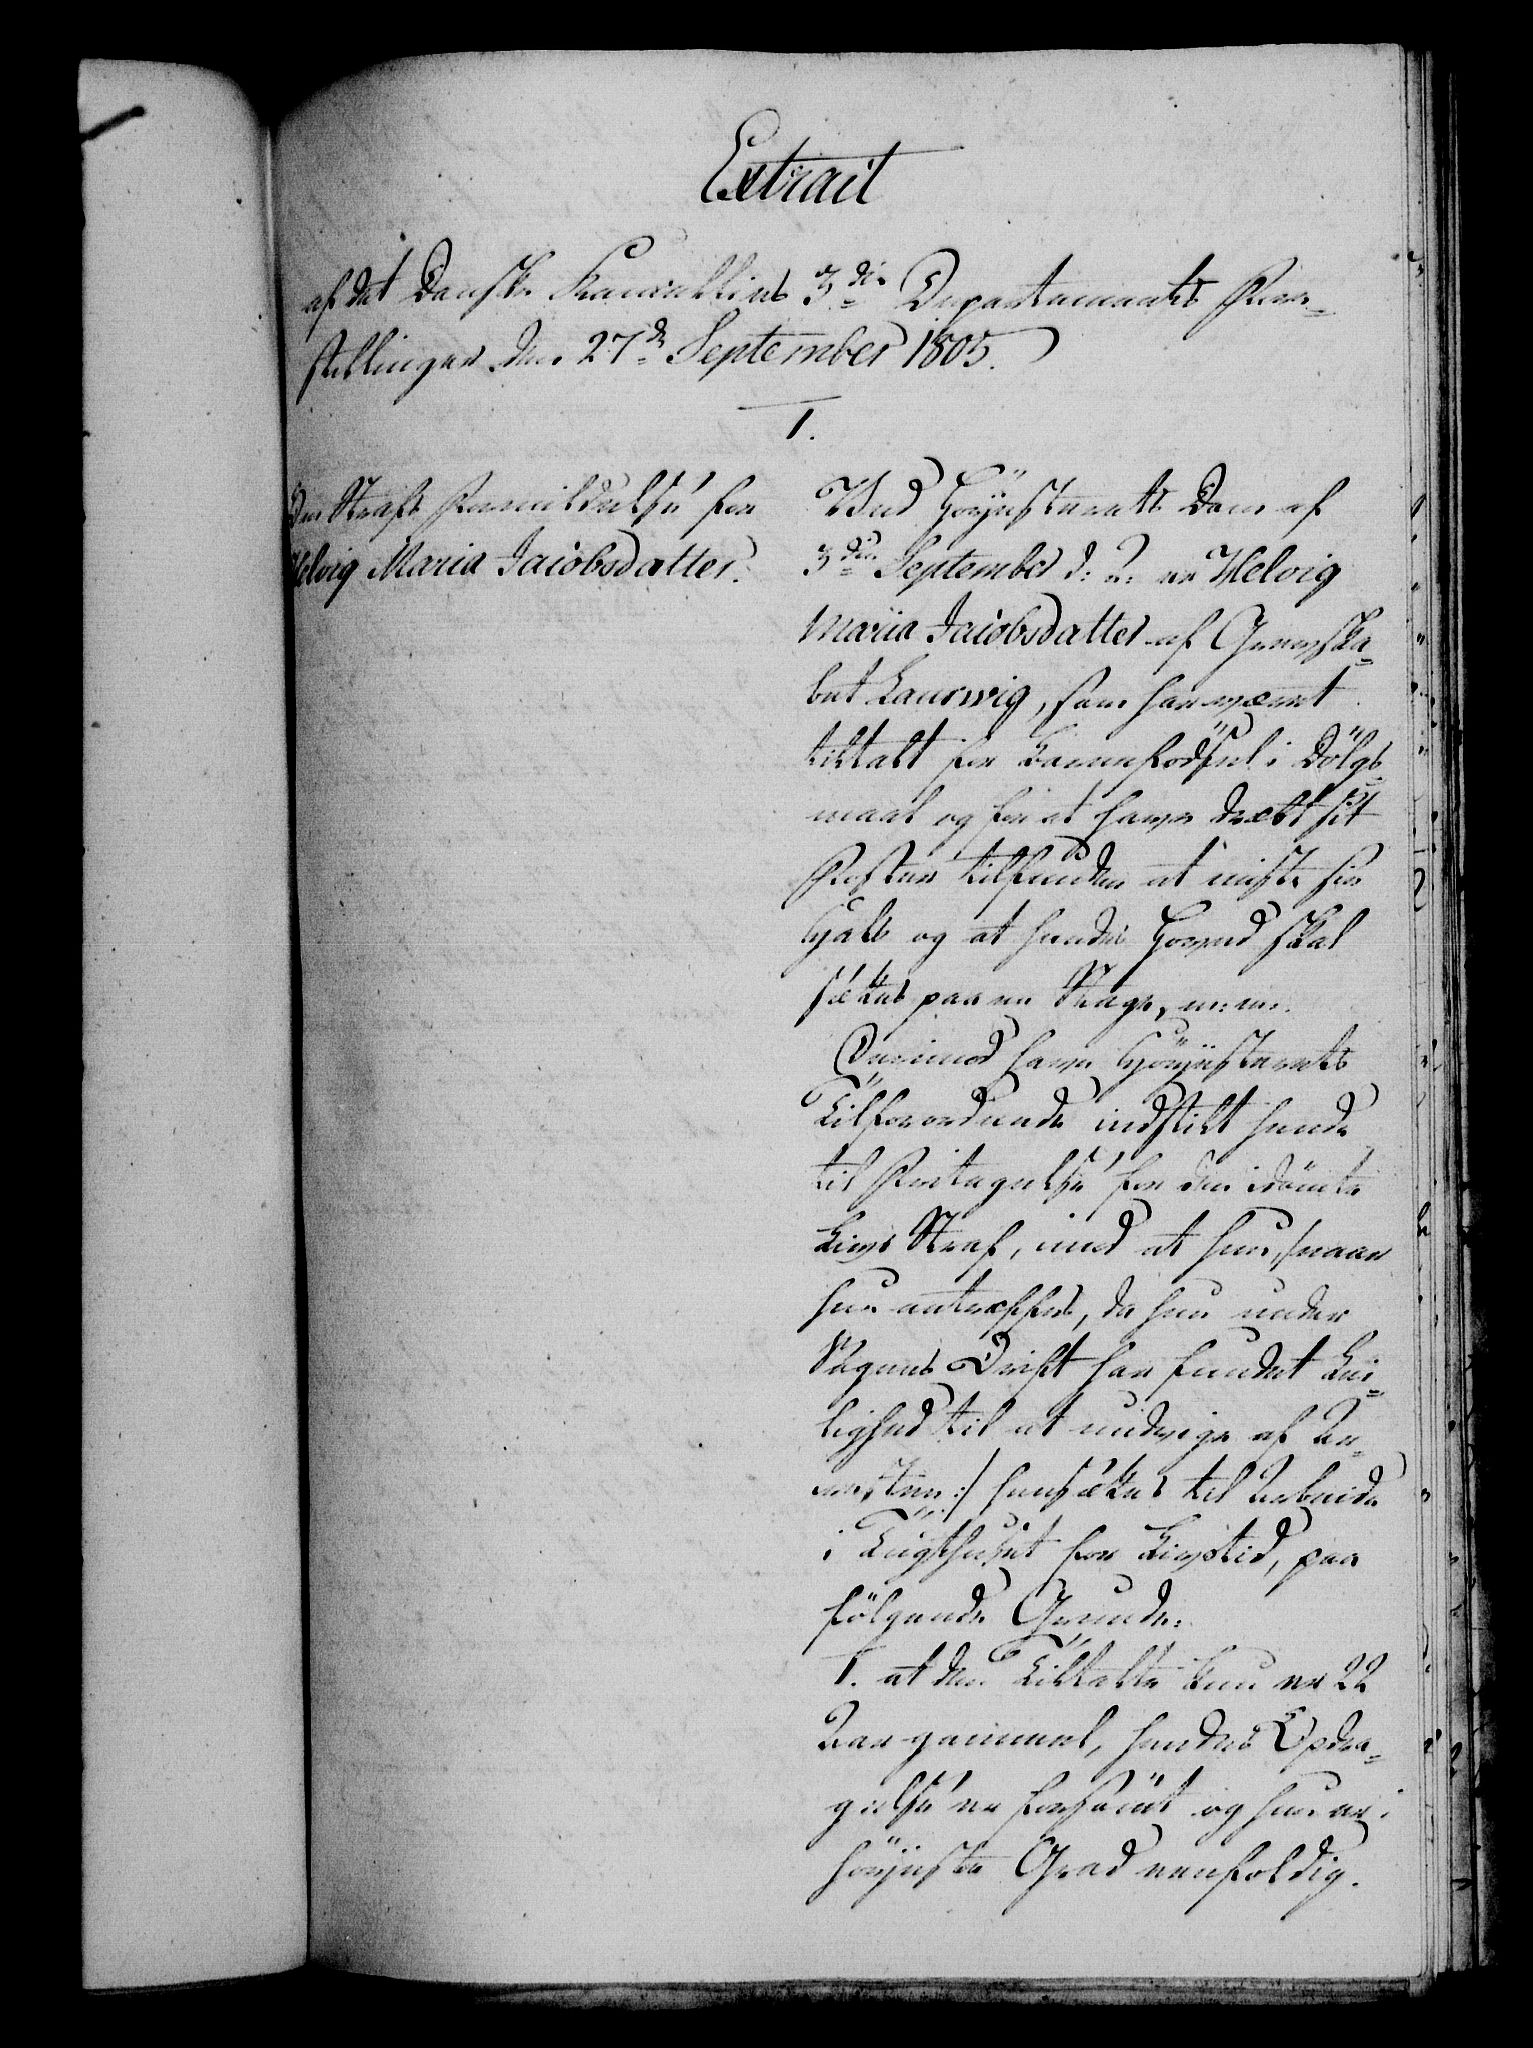 Extrait
af det Danske Kancellies 3die Departements Fore-
stillinger den 27de September 1805.
1.
Om Straffs Formildelse for
Helvig Maria Jacobsdatter.
Ved Höyesterets Dom af
3die September d: A: er Helvig
Maria Jacobsdatter af Grevska-
bet Laurwig, som har været
tiltalt for Barnefödsel i Dölgs-
maal og for at have dræbt sit
Foster tilfunden at miste sin
Hals og at hendes Hoved skal
sættes paa en Stage, m: m:
Derimod have Höyesterets
Tilforordnede indstilt hende
til Fritagelse for den idömte
Livs Straf, imod at hun, /naar
hun antræffes, da hun under
Sagens Drift har fundet Lei-
lighed til at undvige af Ar-
resten:/ hensættes til Arbeide
i Tugthuset for Livstid, paa
fölgende Grunde:
1. at den Tiltalte kun er 22
Aar gammel, hendes Opdra-
gelse er forsömt og hun er i
höyeste Grad eenfoldig.